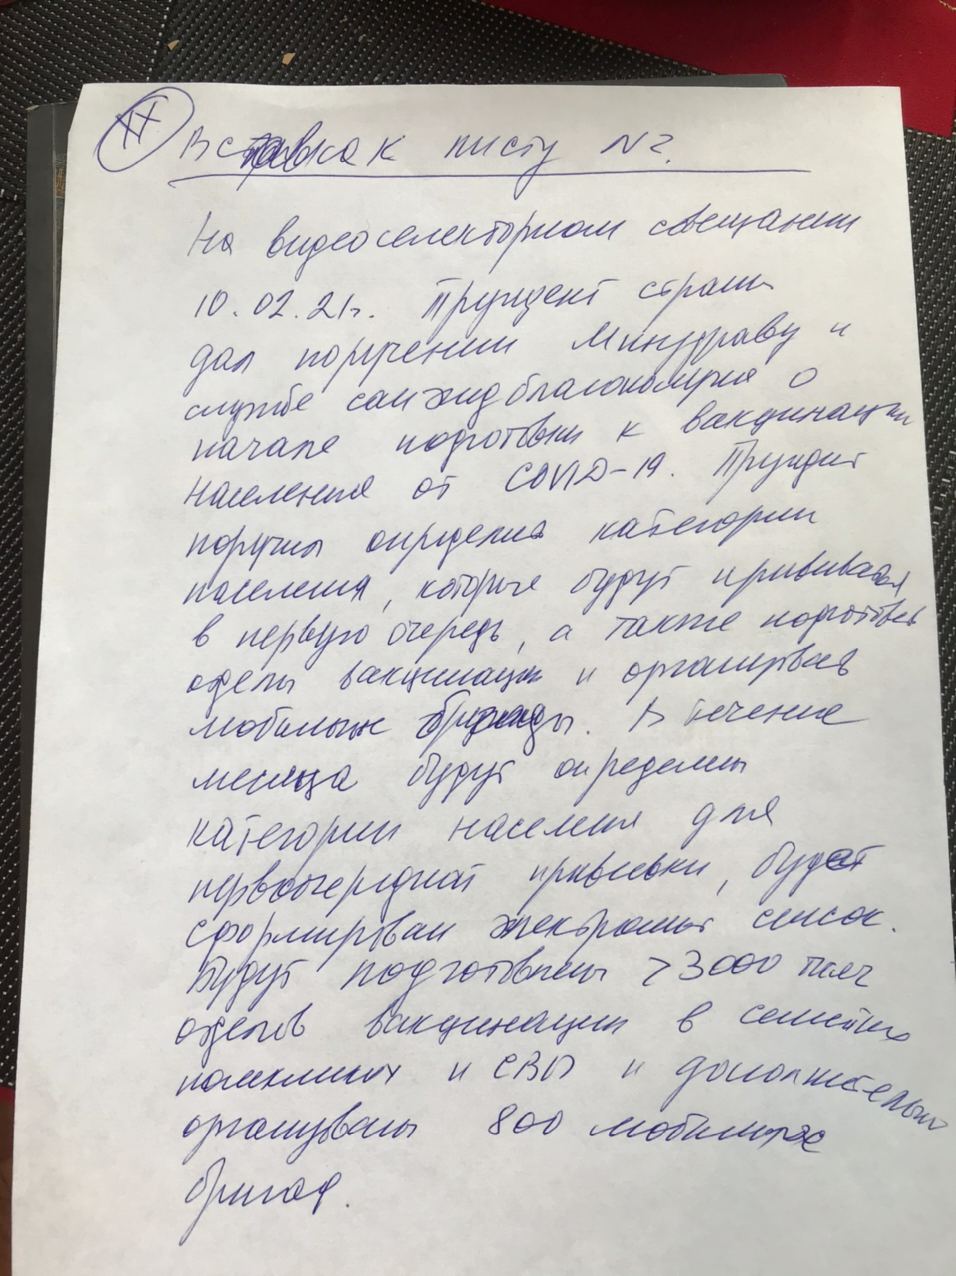 II
Вставка к листу №2.
На видеоселекторном совещании
10.02.21г. Президент страны
дал поручении Минздраву и
службе санэпидблагополучия о
начале подготовки к вакцинации
населения от COVID-19. Президент
поручил определить категории
населения, которые будут прививаться
в первую очередь, а также подготовить
отделы вакцинации и организовать
мобильные бригады. В течение
месяца будут определены
категории населения для
первоочередной прививки, будет
сформирован электронный список.
Будут подготовлены >3000
отделов вакцинации в семейных
поликлиниках и СВП и дополнительно
организованы 800 мобильных
бригад.